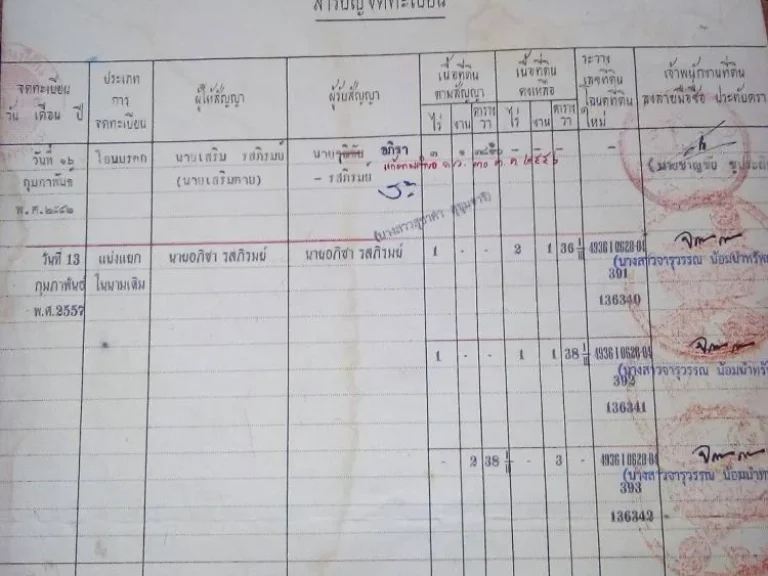 สารบัญจดทะเบียน
จดทะเบียน
วัน เดือน ปี
ประเภท
การ
จดทะเบียน
ผู้ให้สัญญา
ผู้รับสัญญา
เนื้อที่ดิน
ตามสัญญา
ไร่ งาน ตาราง
วา
เนื้อที่ดิน
คงเหลือ
ไร่ งาน ตาราง
วา
ระวาง
เลขที่ดิน
โฉนดที่ดิน
ใหม่
เจ้าพนักงานที่ดิน
ลงลายมือชื่อ ประทับตรา
วันที่ ๑๖
กุมภาพันธ์
พ.ศ.๒๕๔๒
โอนมรดก
นายเสริม รสภิรมย์
(นายเสริมตาย)
นาย อภิชา
- รสภิรมย์
วันที่ 13
กุมภาพันธ์
พ.ศ.2557
แบ่งแยก
ในนามเดิม
นายอภิชา รสภิรมย์
นายอภิชา รสภิรมย์
1 - - 2 1 36 1/10 4936 I 0628-04
(นางสาวจารุวรรณ น้อมนำทรัพ
391
136340
1 - - 1 1 38 1/10 4936 I 0628-04
(นางสาวจารุวรรณ น้อมนำทรัพ
392
136341
- 2 38 1/10 - 3 - 4936 I 0628-04
(นางสาวจารุวรรณ น้อมนำท
393
136342